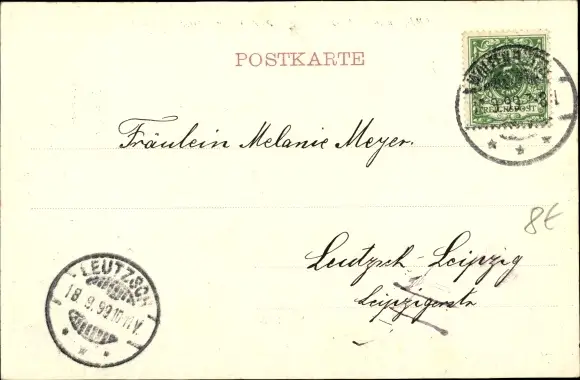 POSTKARTE
Fräulein Melanie Meyer.
8€
Leutzsch-Leipzig
Leipzigerstr
LEUTZSCH
18.9.99.10-11.V.